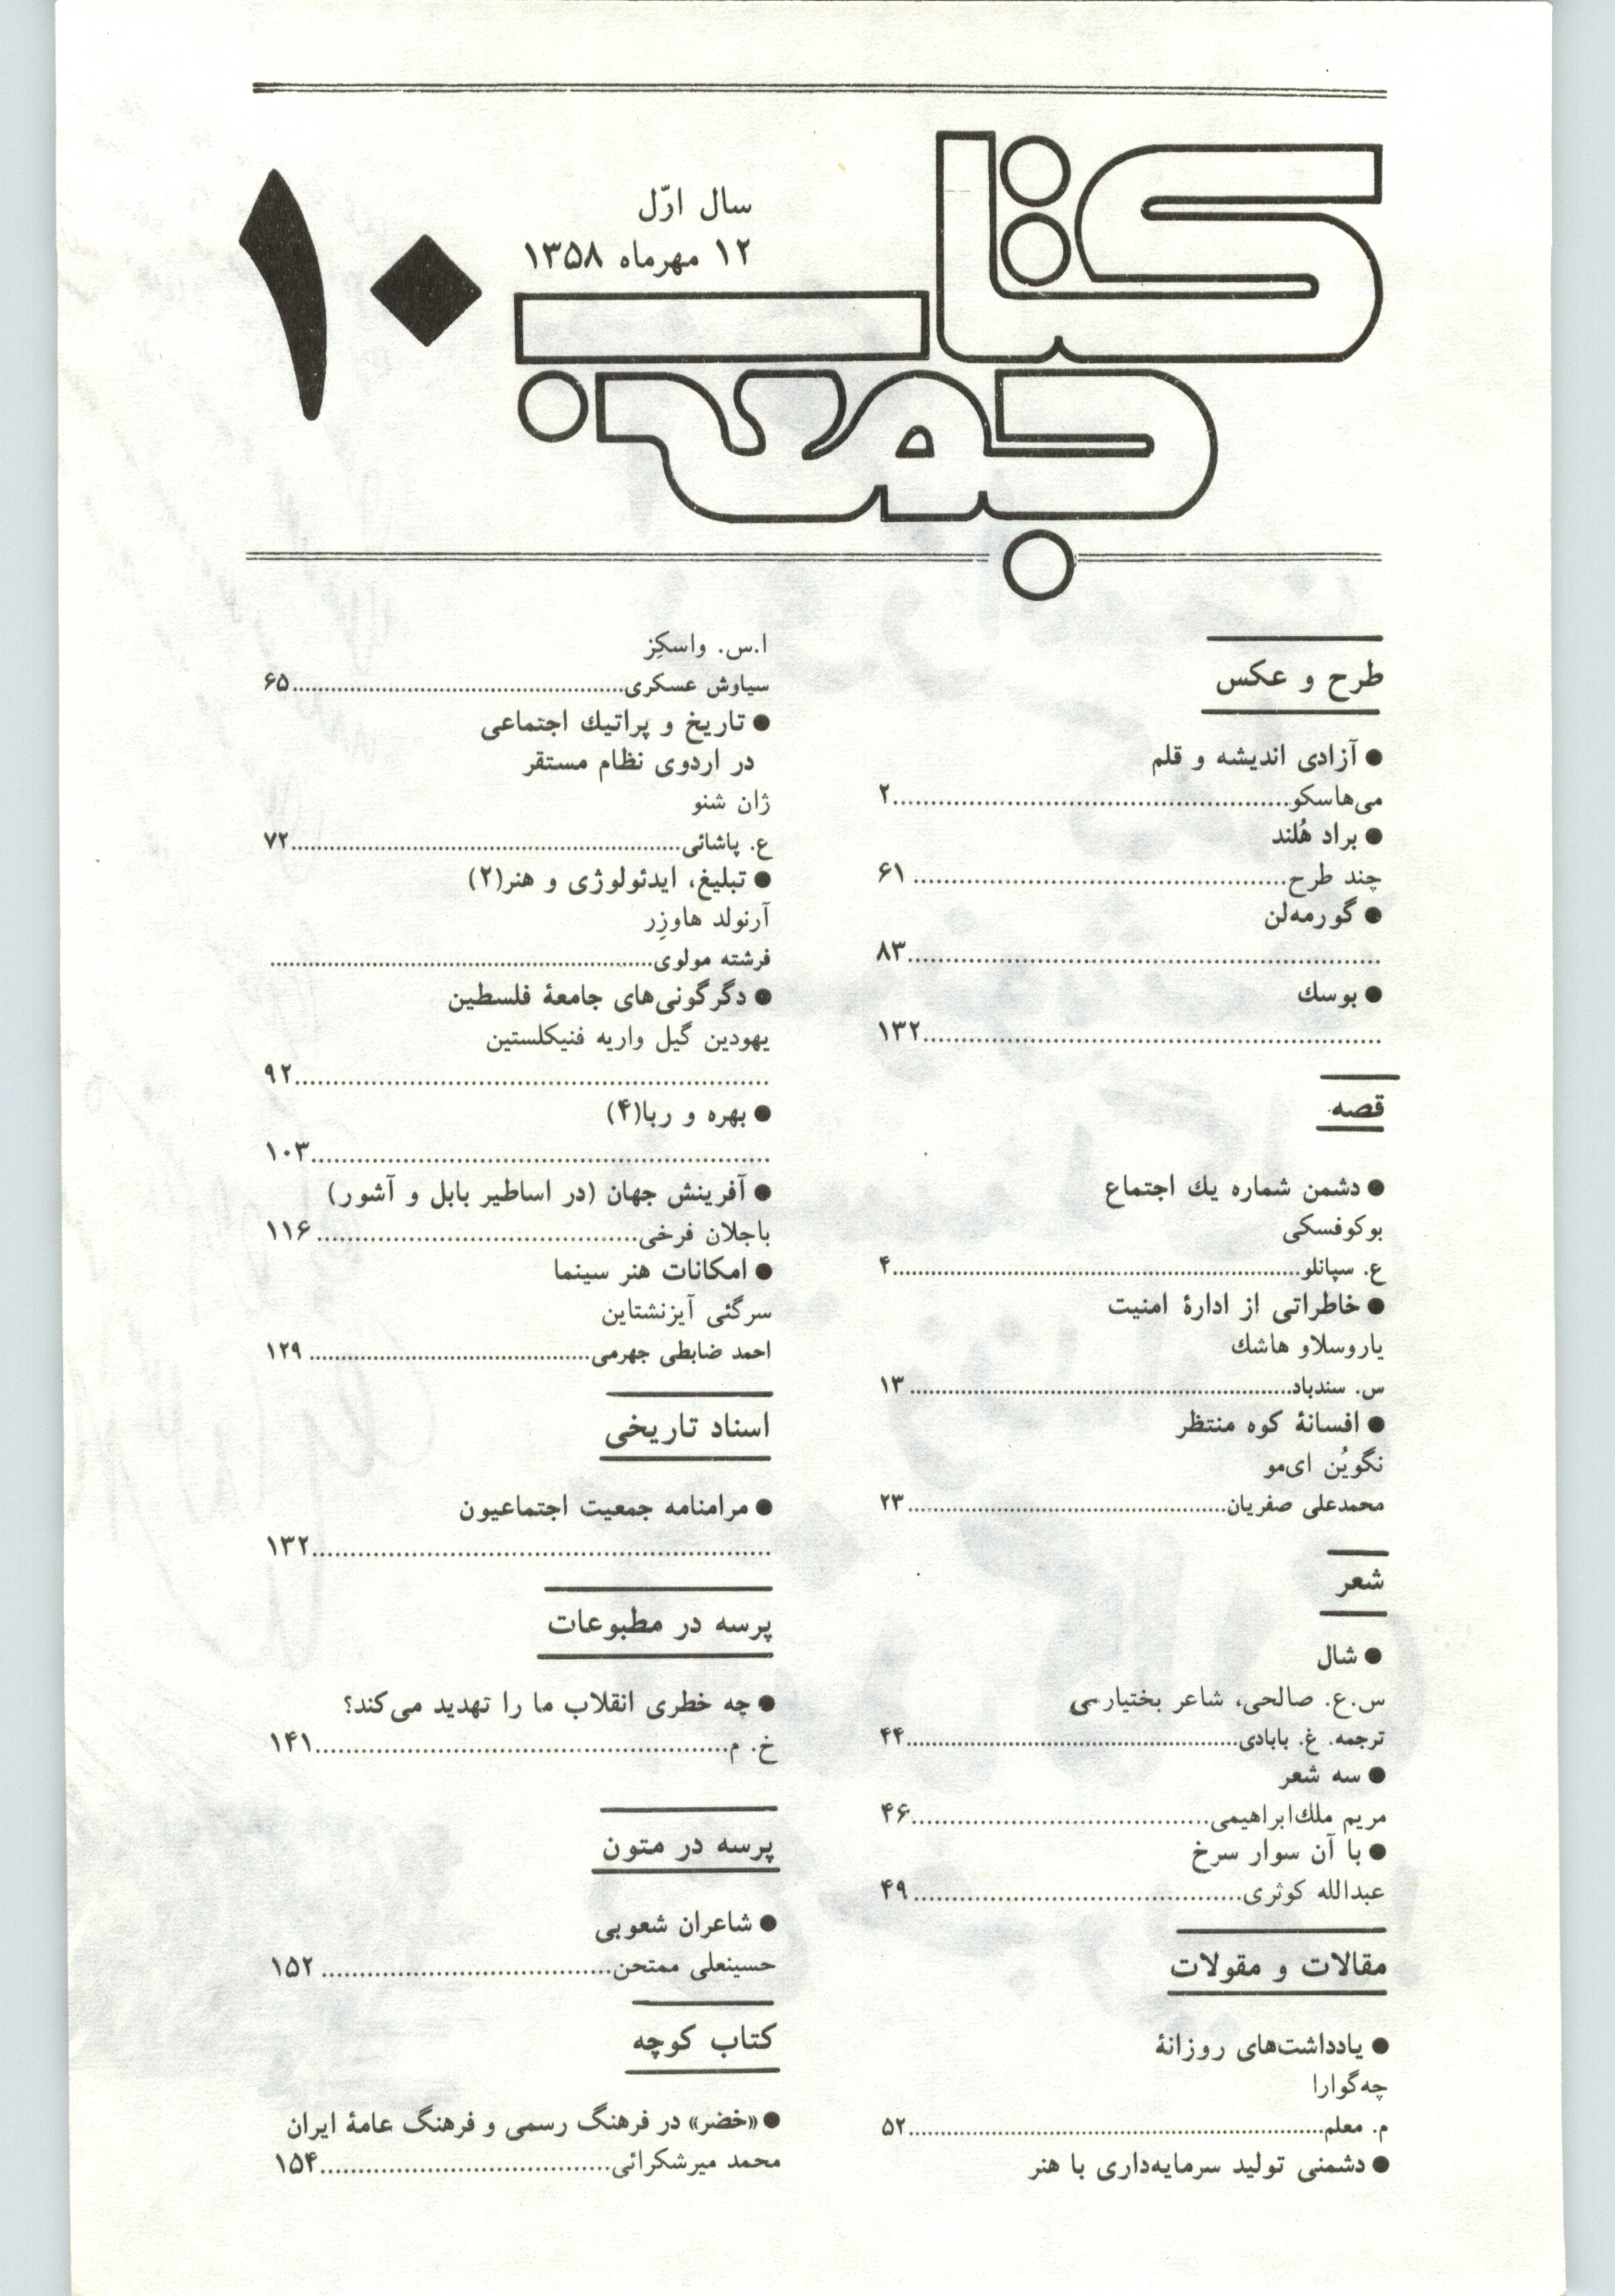 کتاب
جمعه
سال اوّل
۱۲ مهرماه ۱۳۵۸
۱۰
طرح و عکس
● آزادی اندیشه و قلم
می‌هاسکو..........۲
● براد هُلند
چند طرح..........۶۱
● گورمه‌لن
..........۸۳
● بوسك
..........۱۳۲
قصه
● دشمن شماره یك اجتماع
بوکوفسکی
ع. سپانلو..........۴
● خاطراتی از ادارۀ امنیت
یاروسلاو هاشك
س. سندباد..........۱۳
● افسانۀ کوه منتظر
نگویُن ای‌مو
محمدعلی صفریان..........۲۳
شعر
● شال
س.ع. صالحی، شاعر بختیارسی
ترجمه. غ. بابادی..........۴۴
● سه شعر
مریم ملك‌ابراهیمی..........۴۶
● با آن سوار سرخ
عبدالله کوثری..........۴۹
مقالات و مقولات
● یادداشت‌های روزانۀ
چه‌گوارا
م. معلم..........۵۲
● دشمنی تولید سرمایه‌داری با هنر
ا.س. واسکِز
سیاوش عسکری..........۶۵
● تاریخ و پراتیك اجتماعی
در اردوی نظام مستقر
ژان شنو
ع. پاشائی..........۷۲
● تبلیغ، ایدئولوژی و هنر(۲)
آرنولد هاوزِر
فرشته مولوی..........
● دگرگونی‌های جامعۀ فلسطین
یهودین گیل واریه فنیکلستین
..........۹۲
● بهره و ربا(۴)
..........۱۰۳
● آفرینش جهان (در اساطیر بابل و آشور)
باجلان فرخی..........۱۱۶
● امکانات هنر سینما
سرگئی آیزنشتاین
احمد ضابطی جهرمی..........۱۲۹
اسناد تاریخی
● مرامنامه جمعیت اجتماعیون
..........۱۳۲
پرسه در مطبوعات
● چه خطری انقلاب ما را تهدید می‌کند؟
خ. م..........۱۴۱
پرسه در متون
● شاعران شعوبی
حسینعلی ممتحن..........۱۵۲
کتاب کوچه
● «خضر» در فرهنگ رسمی و فرهنگ عامۀ ایران
محمد میرشکرائی..........۱۵۴